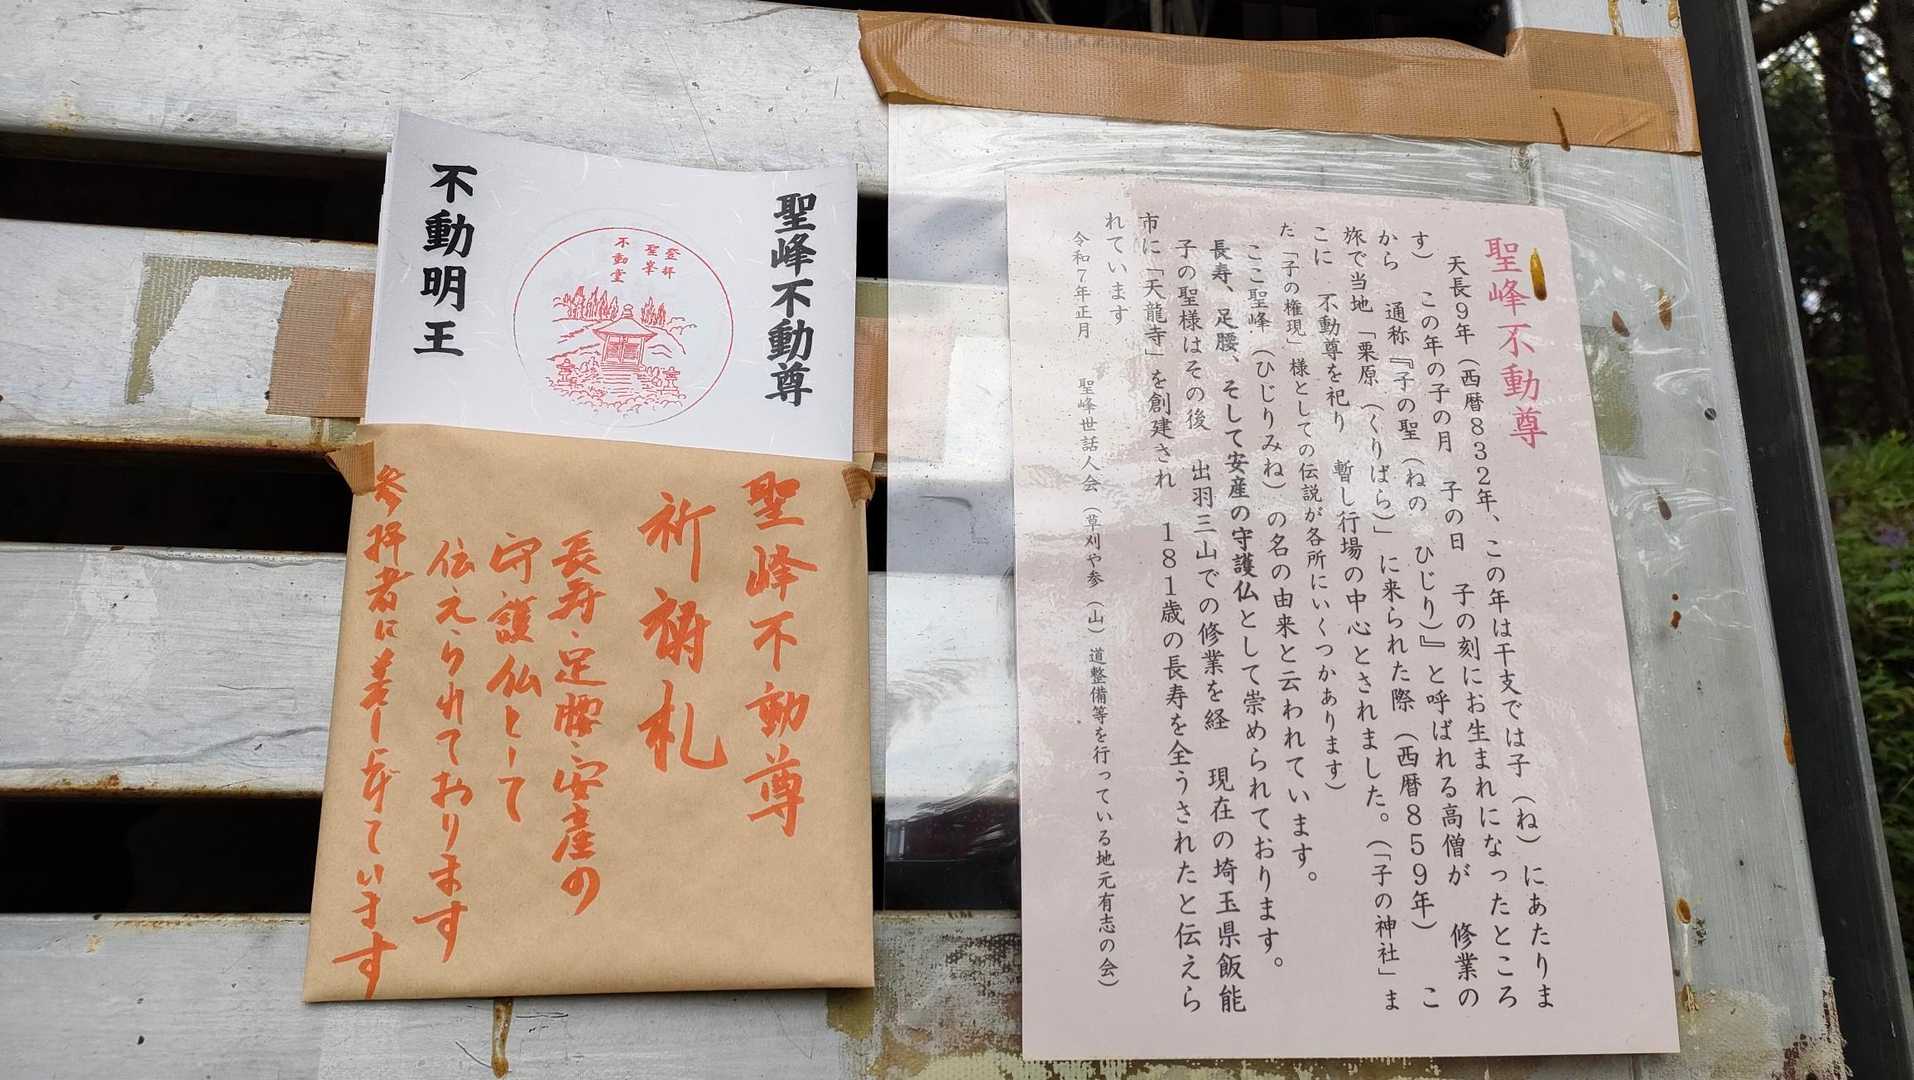 聖峰不動尊
天長9年（西暦832年、この年は干支では子（ね）にあたりま
す） この年の子の月 子の日 子の刻にお生まれになったところ
から 通称『子の聖（ねの ひじり）』と呼ばれる高僧が 修業の
旅で当地「栗原（くりばら）」に来られた際（西暦859年） こ
こに 不動尊を祀り 暫し行場の中心とされました。（「子の神社」ま
た「子の権現」様としての伝説が各所にいくつかあります）
ここ聖峰（ひじりみね）の名の由来と云われています。
長寿、足腰、そして安産の守護仏として崇められております。
子の聖様はその後 出羽三山での修業を経 現在の埼玉県飯能
市に「天龍寺」を創建され 181歳の長寿を全うされたと伝えら
れています
令和7年正月 聖峰世話人会（草刈や参（山）道整備等を行っている地元有志の会）
聖峰不動尊
登拝
聖峯
不動堂
不動明王
聖峰不動尊
祈祷札
長寿・足腰・安産の
守護仏として
伝えられております
参拝者に差し上げています